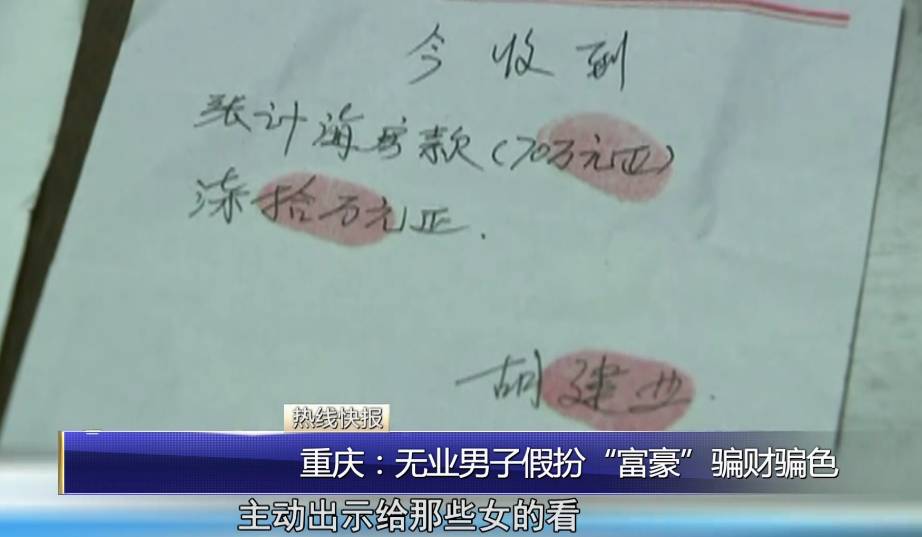 今收到
张计海房款(70万元正)
柒拾万元正.
胡建业.
热线快报
重庆：无业男子假扮“富豪”骗财骗色
主动出示给那些女的看